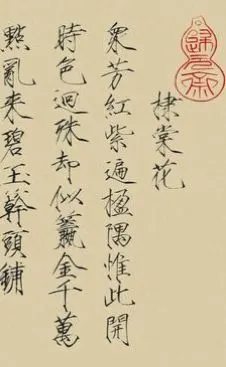 棣棠花
眾芳紅紫遍楹隅惟此開
時色迥殊却似籯金千萬
點亂來碧玉幹頭鋪